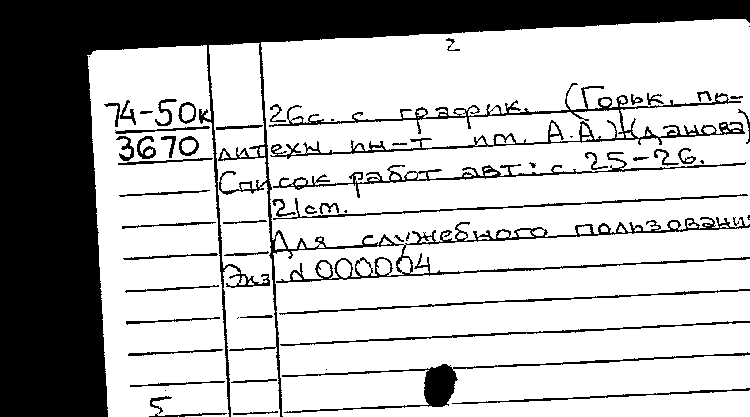 2
74-50к 26с. с график. (Горьк. по-
3670 литехн. ин-т им. А.А. Жданова)
Список работ авт.: с. 25-26.
21см.
Для служебного пользования
Экз. № 000004.
5